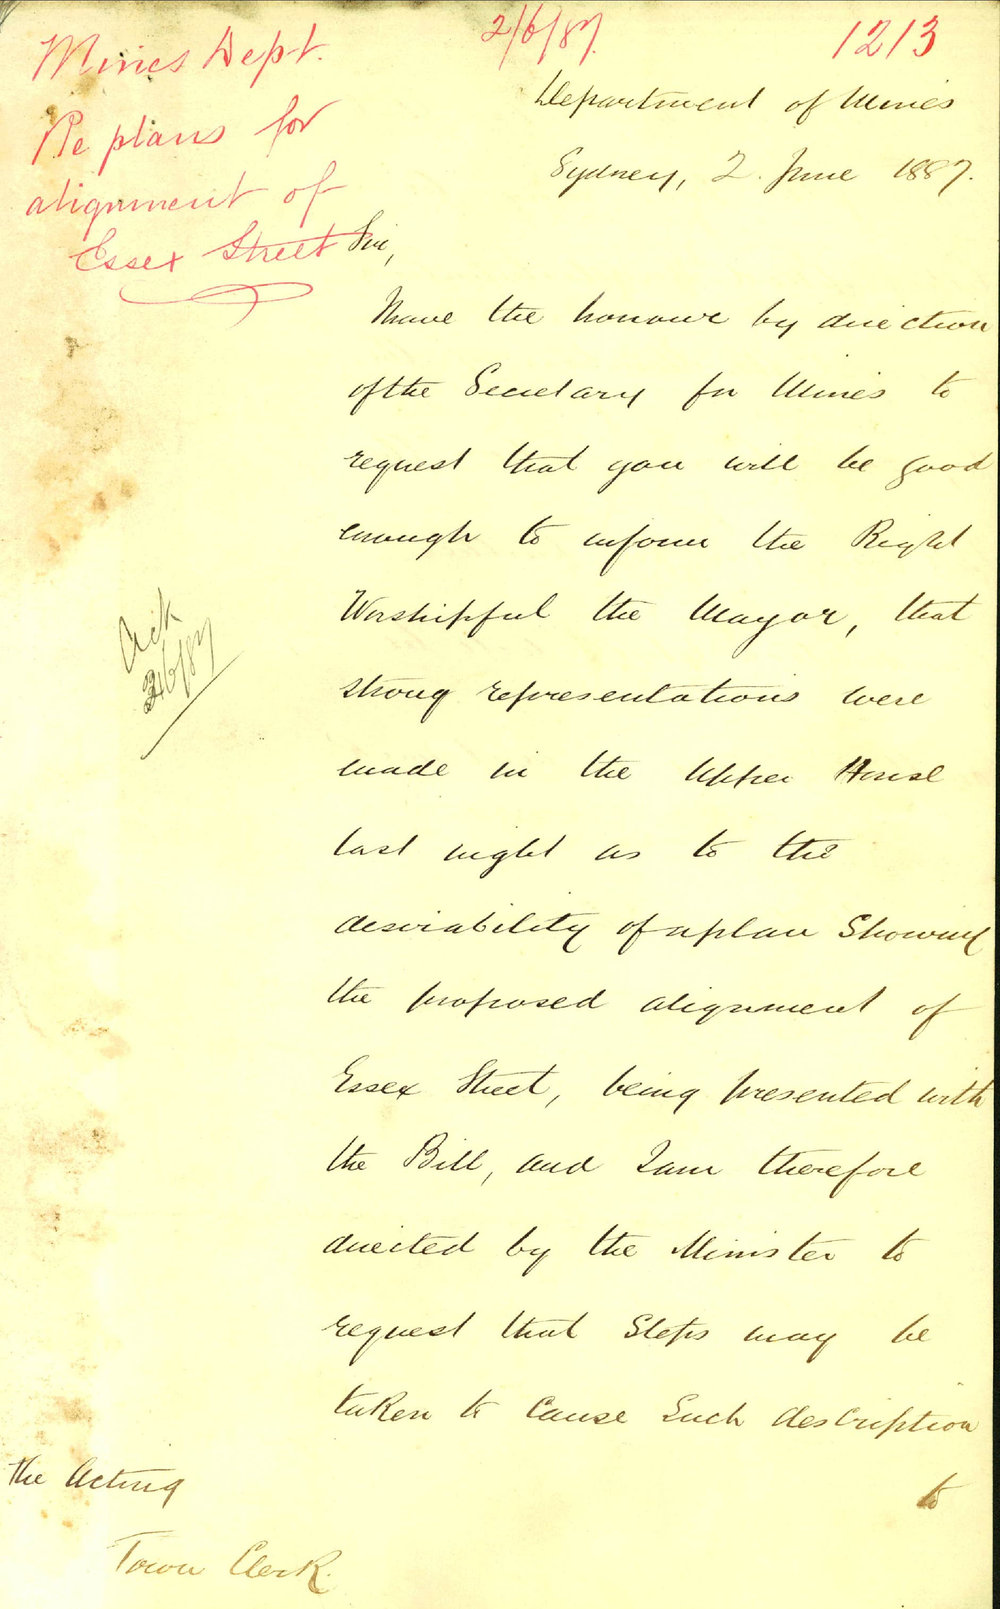 Mines Dept.
Re plans for
alignment of
Essex Street
2/6/87.
1213
Department of Mines
Sydney, 2. June 1887.
Sir,
I have the honour by direction
of the Secretary for Mines to
request that you will be good
enough to inform the Right
Worshipful the Mayor, that
strong representations were
made in the Upper House
last night as to the
desirability of a plan Showing
the proposed alignment of
Essex Street, being presented with
the Bill, and I am therefore
directed by the Minister to
request that Steps may be
taken to Cause Such description
to
Ack
3/6/87
The Acting
Town Clerk.